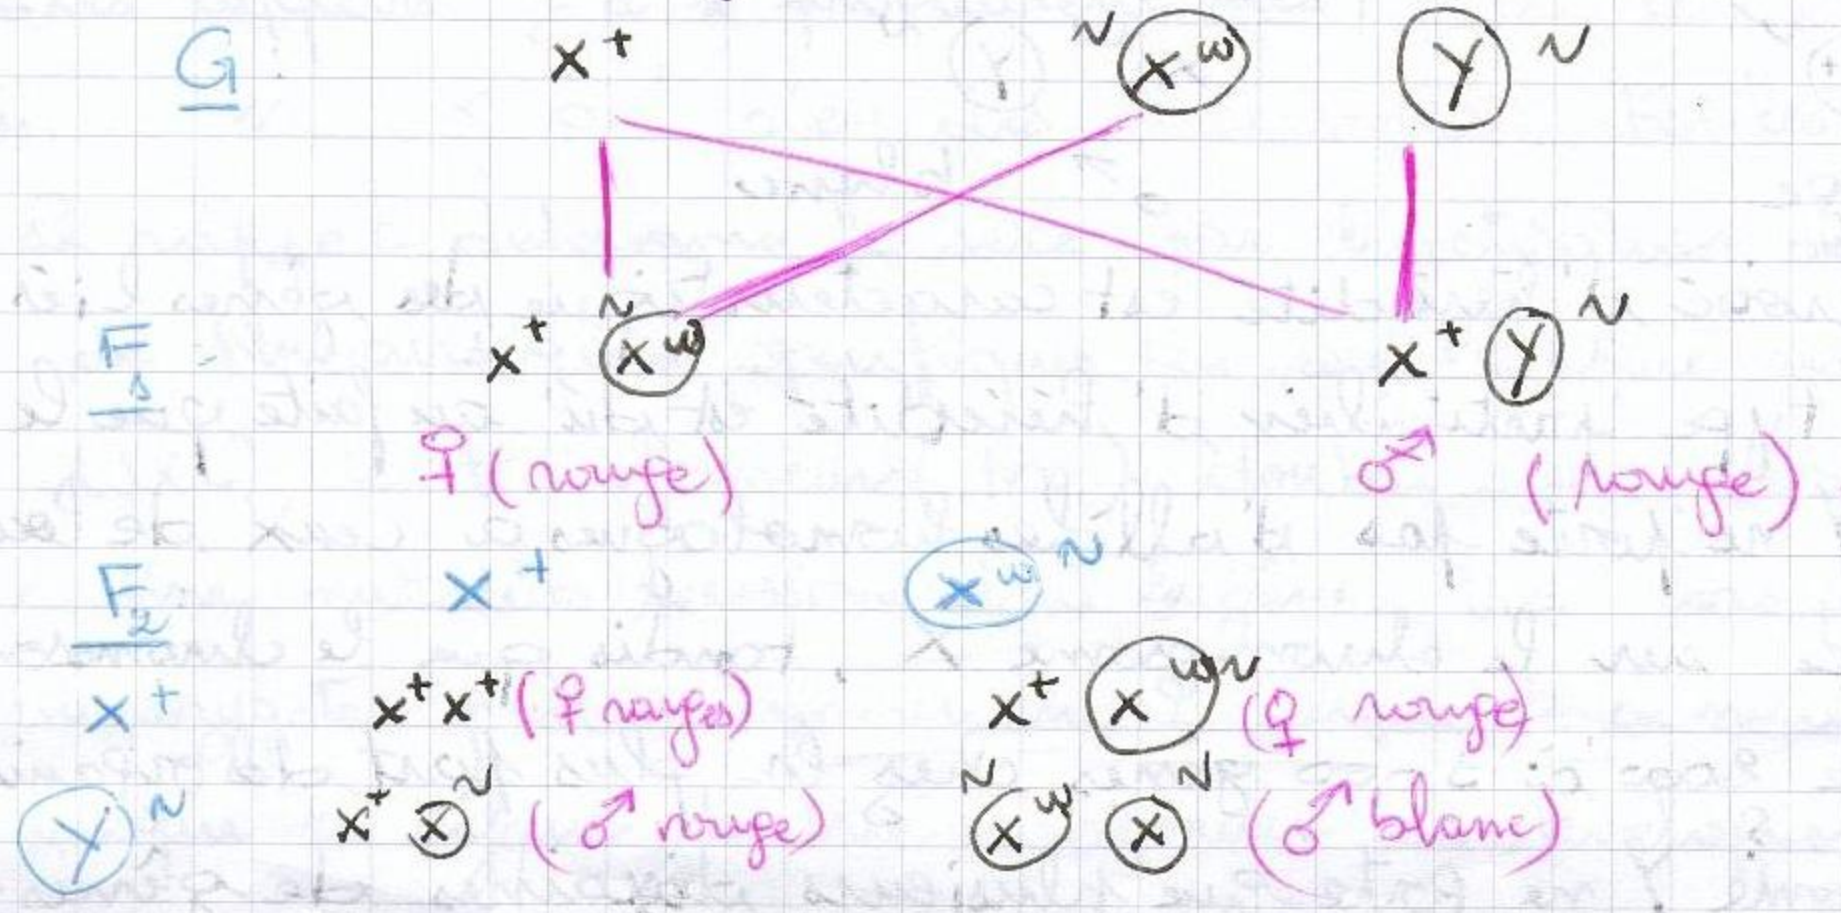 G X⁺ ~ X^w Y ~
F₁ X⁺ ~ X^w X⁺ Y ~
♀ (rouge) ♂ (rouge)
F₂ X⁺ X^w ~
X⁺ X⁺X⁺ (♀ rouges) X⁺ X^w ~ (♀ rouge)
Y ~ X⁺ X ~ (♂ rouge) ~ X^w X ~ (♂ blanc)